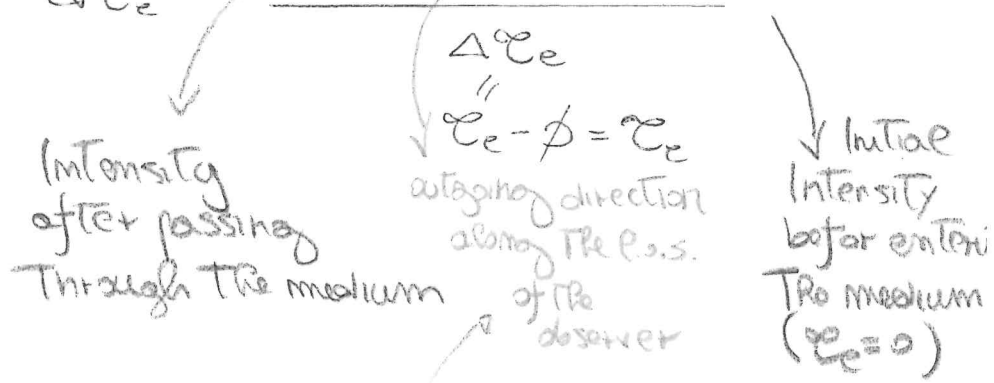 Δτe
"
τe - ∅ = τe
Intensity
after passing
Through The medium
outgoing direction
along The l.o.s.
of The
observer
Initial
Intensity
befor enteri
The medium
(τe=0)